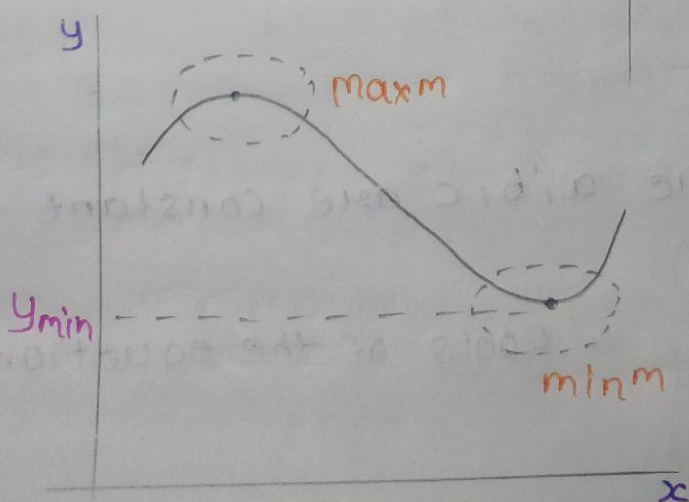 y
maxm
ymin
minm
x